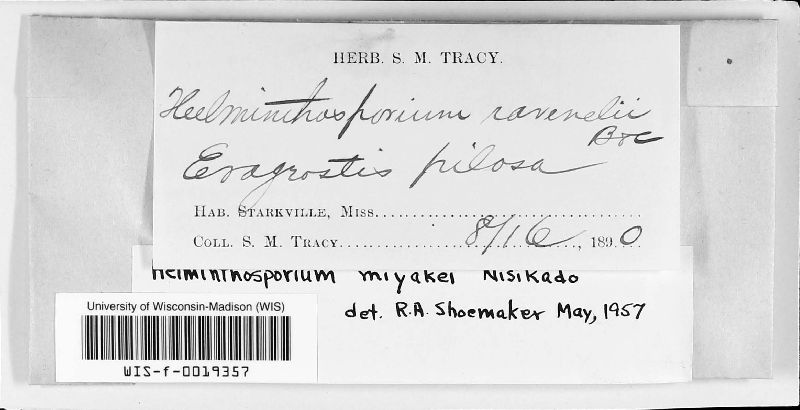 HERB. S. M. TRACY.
Helminthosporium ravenelii
B & C
Eragrostis pilosa
HAB. STARKVILLE, MISS.
COLL. S. M. TRACY. 8/16, 1890
Helminthosporium miyakei Nisikado
det. R.A. Shoemaker May, 1957
University of Wisconsin-Madison (WIS)
WIS-f-0019357